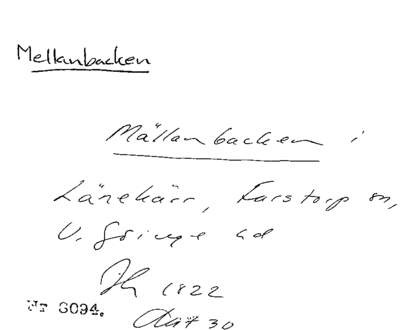 Mellanbacken
Mällanbacken i
Länekärr, Farstorp sn,
V. Göinge hd
1822
Nr 6094.
30